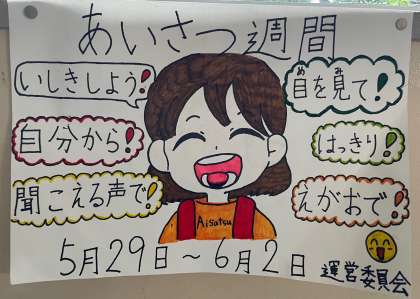 あいさつ週間
いしきしよう!
目を見て!
自分から!
はっきり!
聞こえる声で!
えがおで!
Aisatsu
5月29日～6月2日
運営委員会